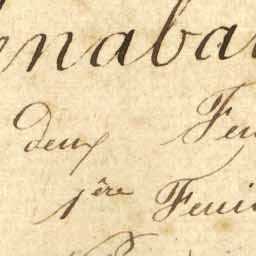 enabar
deux Feu
1ère Feui